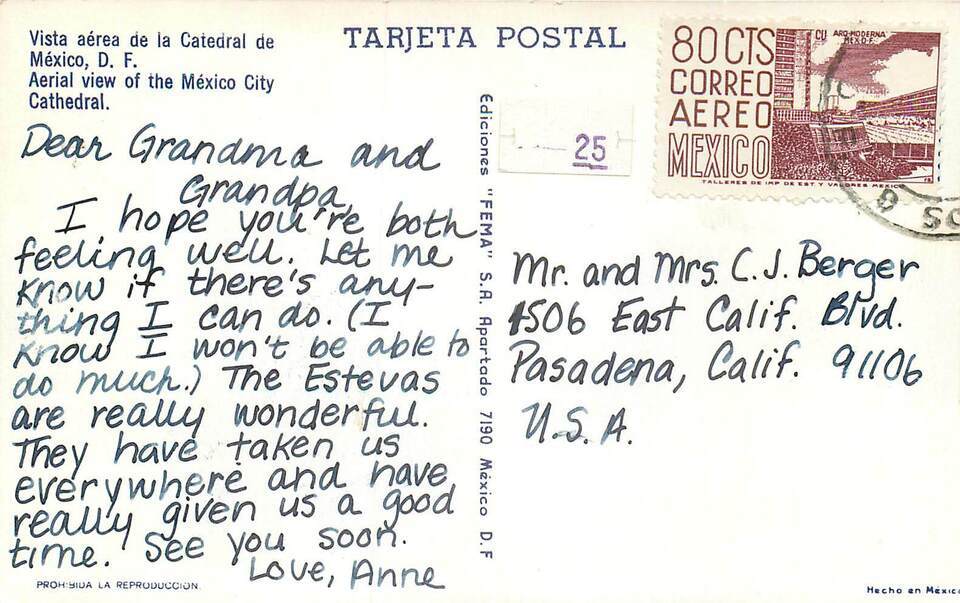 Vista aérea de la Catedral de
México, D. F.
Aerial view of the México City
Cathedral.
TARJETA POSTAL
Dear Grandma and
Grandpa,
I hope you're both
feeling well. Let me
know if there's any-
thing I can do. (I
know I won't be able to
do much.) The Estevas
are really wonderful.
They have taken us
everywhere and have
really given us a good
time. See you soon.
Love, Anne
PROHIBIDA LA REPRODUCCION
Ediciones "FEMA" S.A. Apartado 7190 México D.F
25
80 CTS
CORREO
AEREO
MEXICO
CU ARQ-MODERNA
MEX-D.F.
TALLERES DE IMP DE EST Y VALORES MEXICO
Mr. and Mrs. C. J. Berger
1506 East Calif. Blvd.
Pasadena, Calif. 91106
U.S.A.
Hecho en México